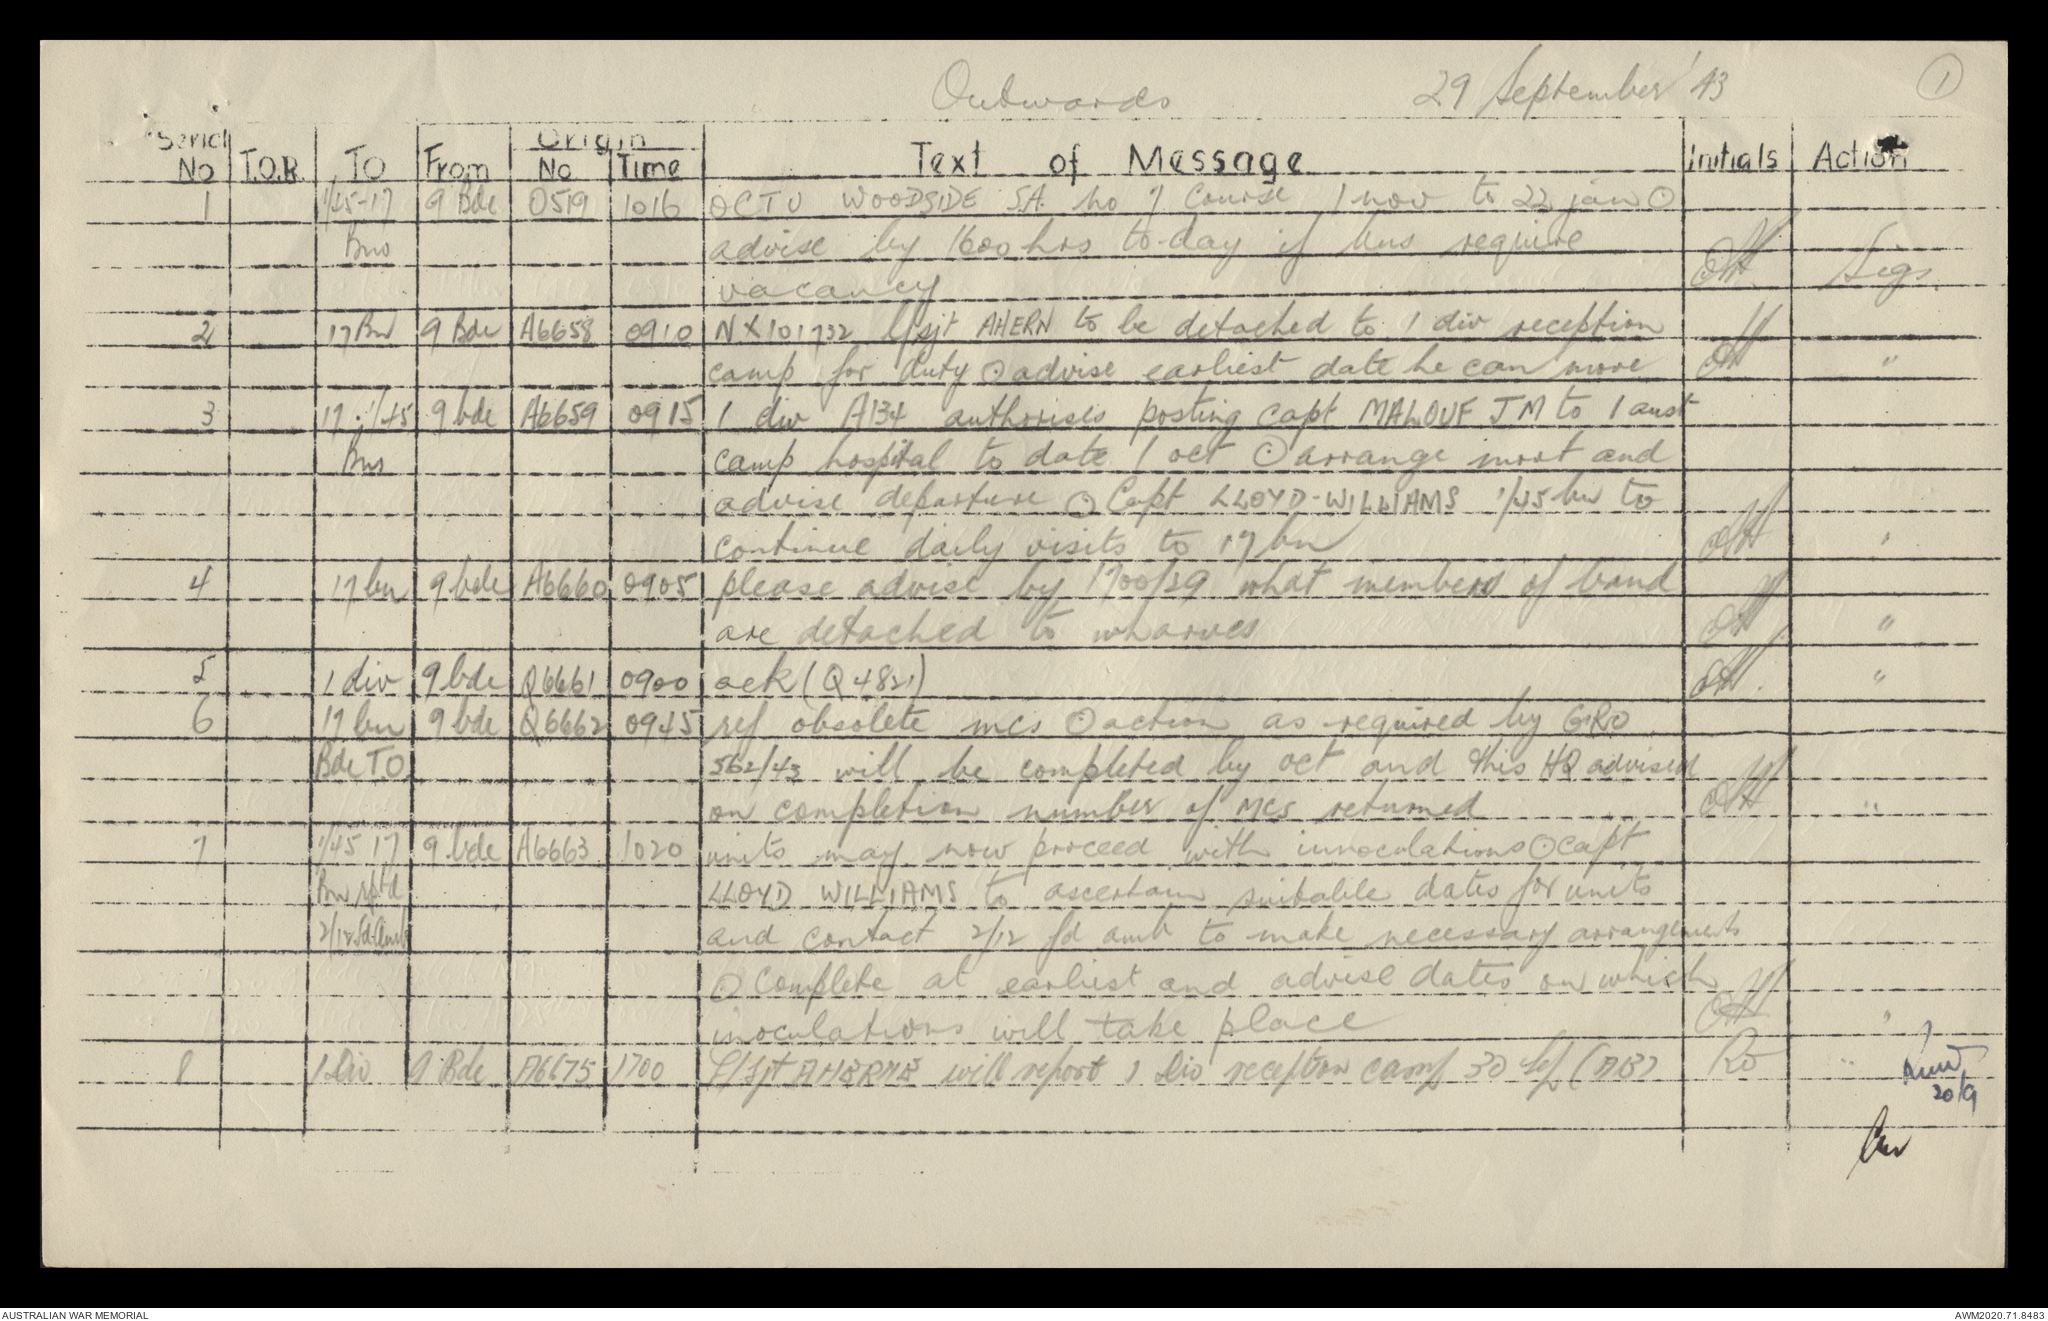 Outwards 29 September '43 1
Serial No T.O.R. TO From Origin No Time Text of Message Initials Action
1 1/45-17 9 Bde O519 1016 OCTU WOODSIDE SA. no 7 Course 1 nov to 22 jan ⊙
Bns advise by 1600 hrs to-day if bns require
vacancy Sigs.
2 17 Bn 9 Bde A6658 0910 NX101732 l/sjt AHERN to be detached to 1 div reception
camp for duty ⊙ advise earliest date he can move "
3 17. 1/45 9 bde A6659 0915 1 div A134 authorises posting capt MALOUF JM to 1 aust
Bns camp hospital to date 1 oct ⊙ arrange mort and
advise departure ⊙ Capt LLOYD-WILLIAMS 1/45 bn to
continue daily visits to 17 bn "
4 17 bn 9 bde A6660 0905 please advise by 1700/29 what members of band
are detached to wharves "
5 1 div 9 bde Q6661 0900 ack (Q4821) "
6 17 bn 9 bde Q6662 0945 ref obsolete mcs ⊙ action as required by GRO
Bde TO 562/43 will be completed by oct and this HQ advised
on completion number of mcs returned "
7 1/45 17 9 bde A6663 1020 units may now proceed with innoculations ⊙ capt
Bns rptd LLOYD WILLIAMS to ascertain suitable dates for units
2/12 Fd Amb and contact 2/12 fd amb to make necessary arrangements
⊙ Complete at earliest and advise dates on which
inoculations will take place "
8 1 Div 9 Bde A6675 1700 L/Sjt AHERNE will report 1 Div reception camp 30 Sep Ro "
20/9